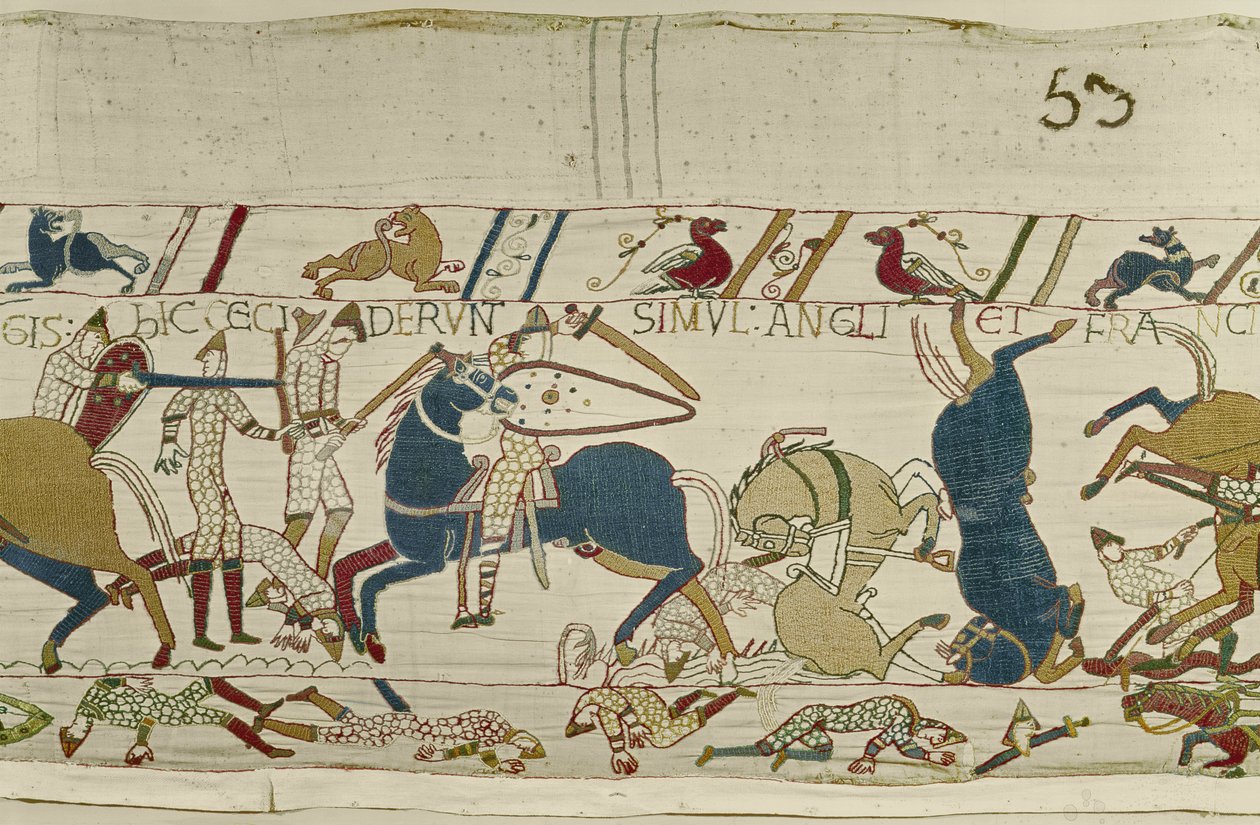 53
GIS: hIC CECIDERVNT SIMVL: ANGLI ET FRANCI